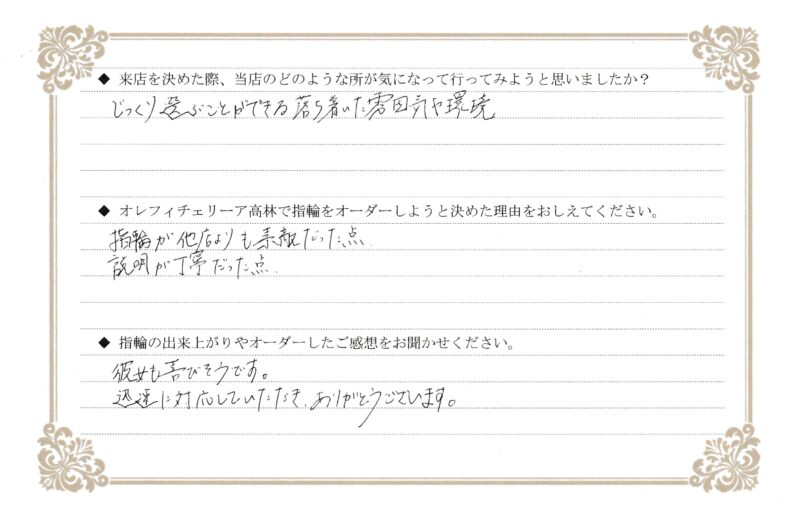 ◆ 来店を決めた際、当店のどのような所が気になって行ってみようと思いましたか？
じっくり選ぶことができる落ち着いた雰囲気や環境
◆ オレフィチェリーア高林で指輪をオーダーしようと決めた理由をおしえてください。
指輪が他店よりも素敵だった点
説明が丁寧だった点
◆ 指輪の出来上がりやオーダーしたご感想をお聞かせください。
彼女も喜びそうです。
迅速に対応していただき、ありがとうございます。